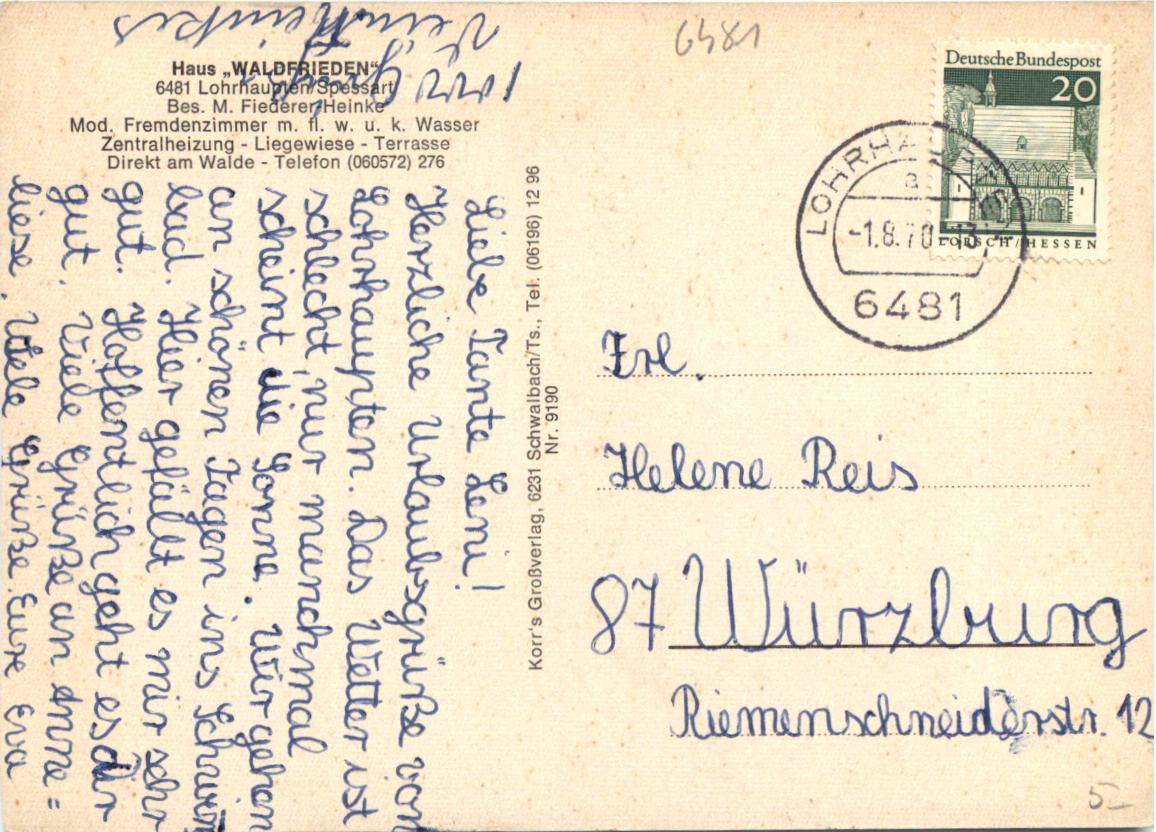 6481
Haus „WALDFRIEDEN“
6481 Lohrhaupten/Spessart
Bes. M. Fiederer/Heinke
Mod. Fremdenzimmer m. fl. w. u. k. Wasser
Zentralheizung - Liegewiese - Terrasse
Direkt am Walde - Telefon (060572) 276
Liebe Tante Leni!
Herzliche Urlaubsgrüße von
Lohrhaupten. Das Wetter ist
schlecht, nur manchmal
scheint die Sonne. Wir gehen
an schönen Tagen ins Schwimm
bad. Hier gefält es mir sehr
gut. Hoffentlich geht es dir
gut. Viele Grüße an Anne=
liese. Viele Grüße Eure Eva
Korr's Großverlag, 6231 Schwalbach/Ts., Tel. (06196) 12 96
Nr. 9190
Deutsche Bundespost
20
LORSCH/HESSEN
LOHRHAUPTEN
a
-1.8.70-13
6481
Frl.
Helene Reis
87 Würzburg
Riemenschneiderstr. 12
5-